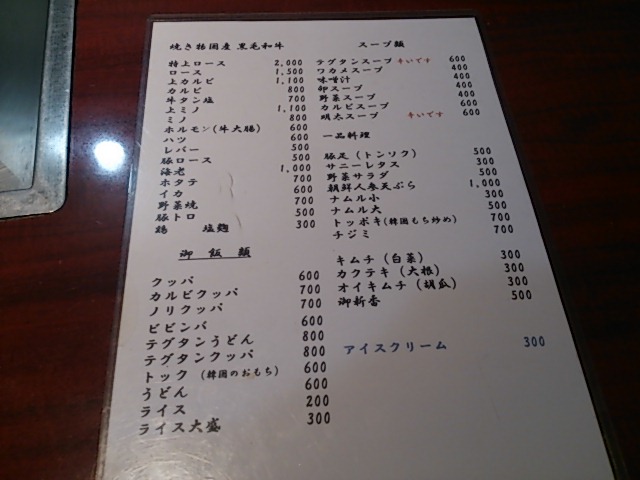 焼き物国産 黒毛和牛
特上ロース 2,000
ロース 1,500
上カルビ 1,100
カルビ 800
牛タン塩 700
上ミノ 1,100
ミノ 800
ホルモン(牛大腸) 600
ハツ 600
レバー 500
豚ロース 500
海老 1,000
ホタテ 700
イカ 600
野菜焼 700
豚トロ 500
鶏 塩麹 300
御飯類
クッパ 600
カルビクッパ 700
ノリクッパ 700
ビビンバ 600
テグタンうどん 800
テグタンクッパ 800
トック (韓国のおもち) 600
うどん 600
ライス 200
ライス大盛 300
スープ類
テグタンスープ 辛いです 600
ワカメスープ 400
味噌汁 400
卵スープ 400
野菜スープ 400
カルビスープ 600
明太スープ 辛いです 600
一品料理
豚足(トンソク) 500
サニーレタス 300
野菜サラダ 500
朝鮮人参天ぷら 1,000
ナムル小 300
ナムル大 500
トッポキ(韓国もち炒め) 700
チジミ 700
キムチ(白菜) 300
カクテキ(大根) 300
オイキムチ(胡瓜) 300
御新香 500
アイスクリーム 300